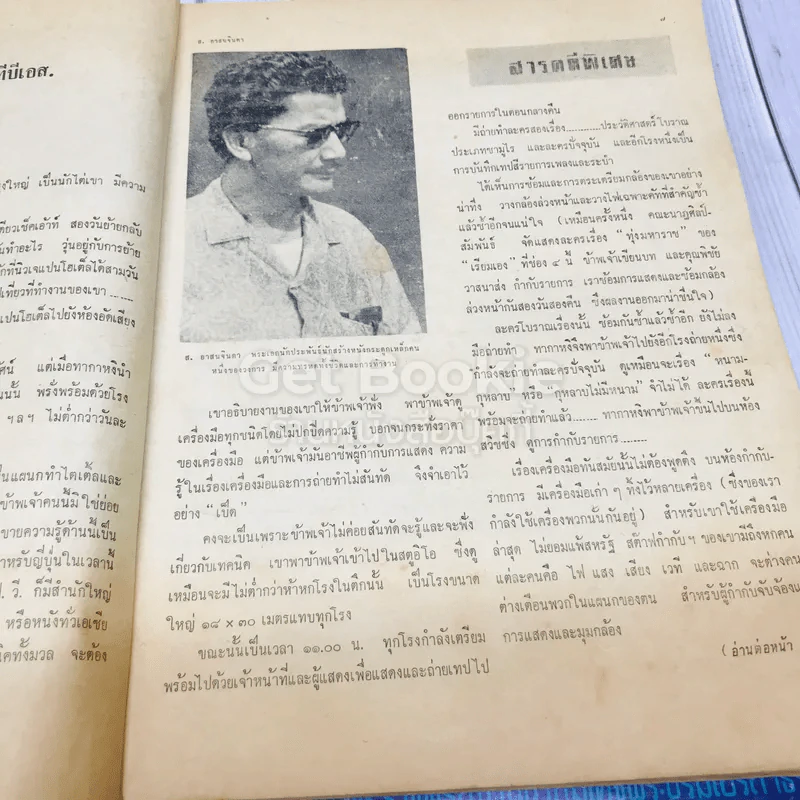 ทีบีเอส.
งใหญ่ เป็นนักไต่เขา มีความ
ดียวเช็คเอ้าท์ สองวันย้ายกลับ
นทำอะไร วุ่นอยู่กับการย้าย
กที่นิวเจแปนโฮเต็ลได้สามวัน
ปเที่ยวที่ทำงานของเขา ........
แปนโฮเต็ลไปยังห้องอัดเสียง
ศน์ แต่เมื่อทากาหงินำ
นนั้น พรั่งพร้อมด้วยโรง
ฯลฯ ไม่ต่ำกว่าวันละ
เป็นแผนกทำไตเติ้ลและ
ข้าพเจ้าคนนี้มิใช่ย่อย
ขายความรู้ด้านนี้เป็น
สำหรับญี่ปุ่นในเวลานี้
. วี. ก็มีสำนักใหญ่
หรือหนังทั่วเอเชีย
นิคทั้งมวล จะต้อง
๗
ส. อาสนจินดา
ส. อาสนจินดา พระเอกนักประพันธ์นักสร้างหนังกระดูกเหล็กคน
หนึ่งของวงการ มีความทรหดทั้งชีวิตและการทำงาน
เขาอธิบายงานของเขาให้ข้าพเจ้าฟัง พาข้าพเจ้าดู
เครื่องมือทุกชนิดโดยไม่ปกปิดความรู้ บอกจนกระทั่งราคา
ของเครื่องมือ แต่ข้าพเจ้ามันอาชีพผู้กำกับการแสดง ความ
รู้ในเรื่องเครื่องมือและการถ่ายทำไม่สันทัด จึงจำเอาไว้
อย่าง “เป็ด”
คงจะเป็นเพราะข้าพเจ้าไม่ค่อยสันทัดจะรู้และจะฟัง
เกี่ยวกับเทคนิค เขาพาข้าพเจ้าเข้าไปในสตูดิโอ ซึ่งดู
เหมือนจะมีไม่ต่ำกว่าห้าหกโรงในตึกนั้น เป็นโรงขนาด
ใหญ่ ๑๘ × ๓๐ เมตรแทบทุกโรง
ขณะนั้นเป็นเวลา ๑๑.๐๐ น. ทุกโรงกำลังเตรียม
พร้อมไปด้วยเจ้าหน้าที่และผู้แสดงเพื่อแสดงและถ่ายเทปไป
สารคดีพิเศษ
ออกรายการในตอนกลางคืน
มีถ่ายทำละครสองเรื่อง...........ประวัติศาสตร์โบราณ
ประเภทซามูไร และละครปัจจุบัน และอีกโรงหนึ่งเป็น
การบันทึกเทปสีรายการเพลงและระบำ
ได้เห็นการซ้อมและการตระเตรียมกล้องของเขาอย่าง
น่าทึ่ง วางกล้องล่วงหน้าและวางไฟเฉพาะคัทที่สำคัญซ้ำ
แล้วซ้ำอีกจนแน่ใจ (เหมือนครั้งหนึ่ง คณะนาฏศิลป์-
สัมพันธ์ จัดแสดงละครเรื่อง “ทุ่งมหาราช” ของ
“เรียมเอง” ที่ช่อง ๔ นี้ ข้าพเจ้าเขียนบท และคุณพิชัย
วาสนาส่ง กำกับรายการ เราซ้อมการแสดงและซ้อมกล้อง
ล่วงหน้ากันสองวันสองคืน ซึ่งผลงานออกมาน่าชื่นใจ)
ละครโบราณเรื่องนั้น ซ้อมกันซ้ำแล้วซ้ำอีก ยังไม่ลง
มือถ่ายทำ ทากาหงิจึงพาข้าพเจ้าไปยังอีกโรงถ่ายหนึ่งซึ่ง
กำลังจะถ่ายทำละครปัจจุบัน ดูเหมือนจะเรื่อง “หนาม-
กุหลาบ” หรือ “กุหลาบไม่มีหนาม” จำไม่ได้ ละครเรื่องนี้
พร้อมจะถ่ายทำแล้ว...... ทากาหงิพาข้าพเจ้าขึ้นไปบนห้อง
สวิชชิ่ง ดูการกำกับรายการ........
เรื่องเครื่องมือทันสมัยนั้นไม่ต้องพูดถึง บนห้องกำกับ-
รายการ มีเครื่องมือเก่า ๆ ทิ้งไว้หลายเครื่อง (ซึ่งของเรา
กำลังใช้เครื่องพวกนั้นกันอยู่) สำหรับเขาใช้เครื่องมือ
ล่าสุด ไม่ยอมแพ้สหรัฐ สต๊าฟกำกับฯ ของเขามีถึงหกคน
แต่ละคนคือ ไฟ แสง เสียง เวที และฉาก จะต่างคน
ต่างเตือนพวกในแผนกของตน สำหรับผู้กำกับจับจ้องแ
การแสดงและมุมกล้อง
(อ่านต่อหน้า
Get Bookie